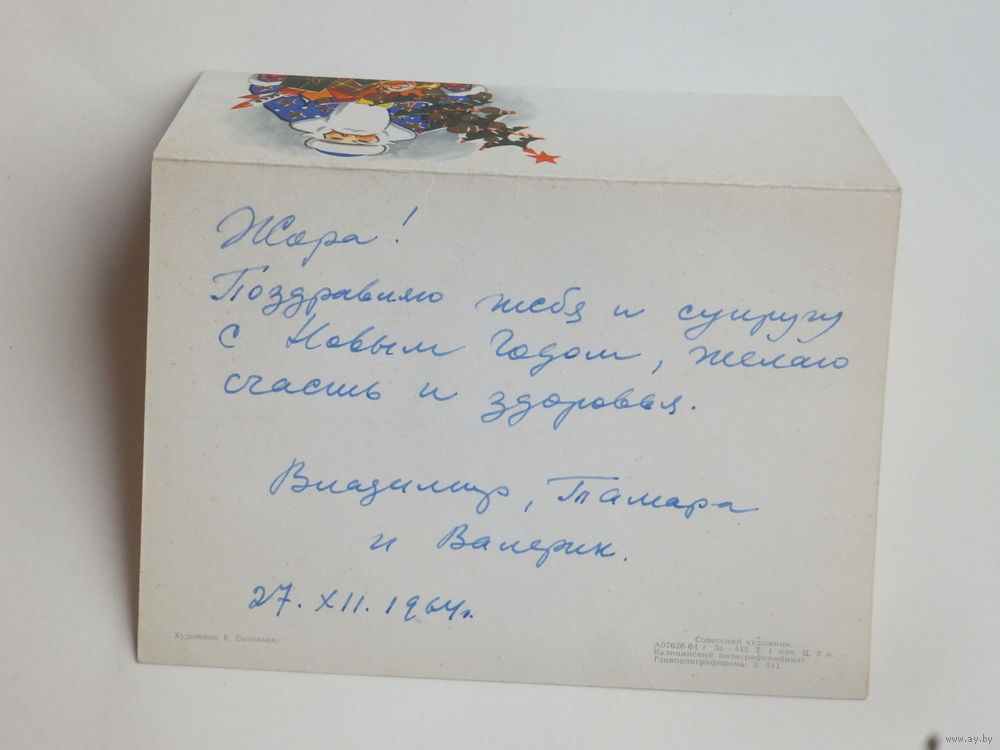 Жора!
Поздравляю тебя и супругу
с Новым Годом, желаю
счасть и здоровья.
Владимир, Тамара
и Валерик.
27.XII.1964г.
Художник Е. Соловьев.
Советский художник.
А07626-64 г. За—445. Т. 1 млн Ц. 3 к.
Калининский полиграфкомбинат
Главполиграфпрома З. 511.
www.ay.by